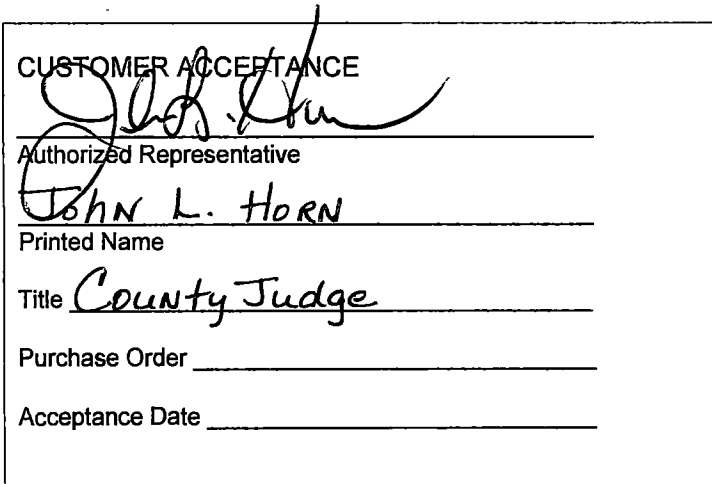 CUSTOMER ACCEPTANCE
John L. Horn
Authorized Representative
John L. Horn
Printed Name
Title County Judge
Purchase Order
Acceptance Date